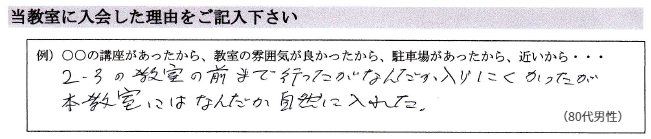 当教室に入会した理由をご記入下さい
例）〇〇の講座があったから、教室の雰囲気が良かったから、駐車場があったから、近いから・・・
2-3の教室の前まで行ったがなんだか入りにくかったが
本教室にはなんだか自然に入れた。
（80代男性）